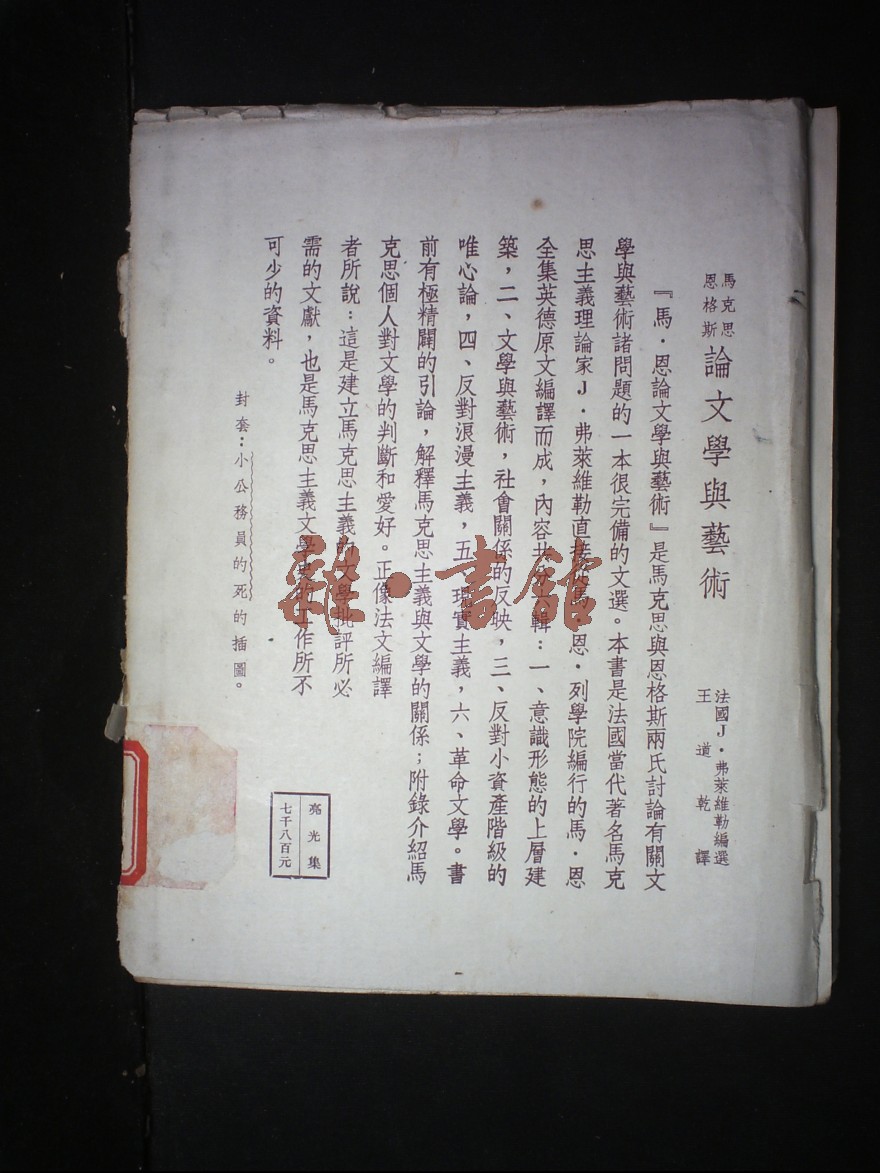 馬克思
恩格斯
論文學與藝術
法國J·弗萊維勒編選
王道乾譯
『馬·恩論文學與藝術』是馬克思與恩格斯兩氏討論有關文
學與藝術諸問題的一本很完備的文選。本書是法國當代著名馬克
思主義理論家J·弗萊維勒直接從馬·恩·列學院編行的馬·恩
全集英德原文編譯而成，內容共分六輯：一、意識形態的上層建
築，二、文學與藝術，社會關係的反映，三、反對小資產階級的
唯心論，四、反對浪漫主義，五、現實主義，六、革命文學。書
前有極精闢的引論，解釋馬克思主義與文學的關係；附錄介紹馬
克思個人對文學的判斷和愛好。正像法文編譯
者所說：這是建立馬克思主義的文學批評所必
需的文獻，也是馬克思主義文學史的工作所不
可少的資料。
封套：小公務員的死的插圖。
亮光集
七千八百元
雜·書館